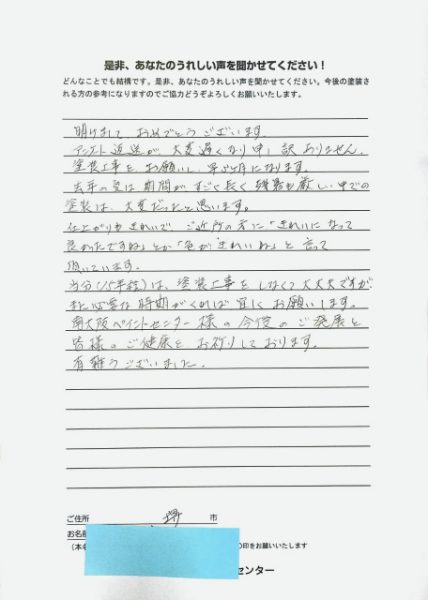 是非、あなたのうれしい声を聞かせてください！
どんなことでも結構です。是非、あなたのうれしい声を聞かせてください。今後の塗装さ
れる方の参考になりますのでご協力どうぞよろしくお願いいたします。
明けまして、おめでとうございます。
アンケート返送が、大変遅くなり申し訳ありません。
塗装工事を、お願いし、早 ヶ月になります。
去年の夏は期間が、すごく長く残暑も厳しい中での
塗装は、大変だったと思います。
仕上がりもきれいで ご近所の方に「きれいになって
良かったですね」とか「色がきれいね」と言って
頂いています。
当分(15年位)は、塗装工事をしなくて大丈夫ですが、
また必要な時期がくれば宜しくお願いします。
南大阪ペイントセンター様の今後のご発展と
皆様のご健康を お祈りしております。
有難うございました。
ご住所 堺 市
お名前
(本名 の印をお願いいたします
センター